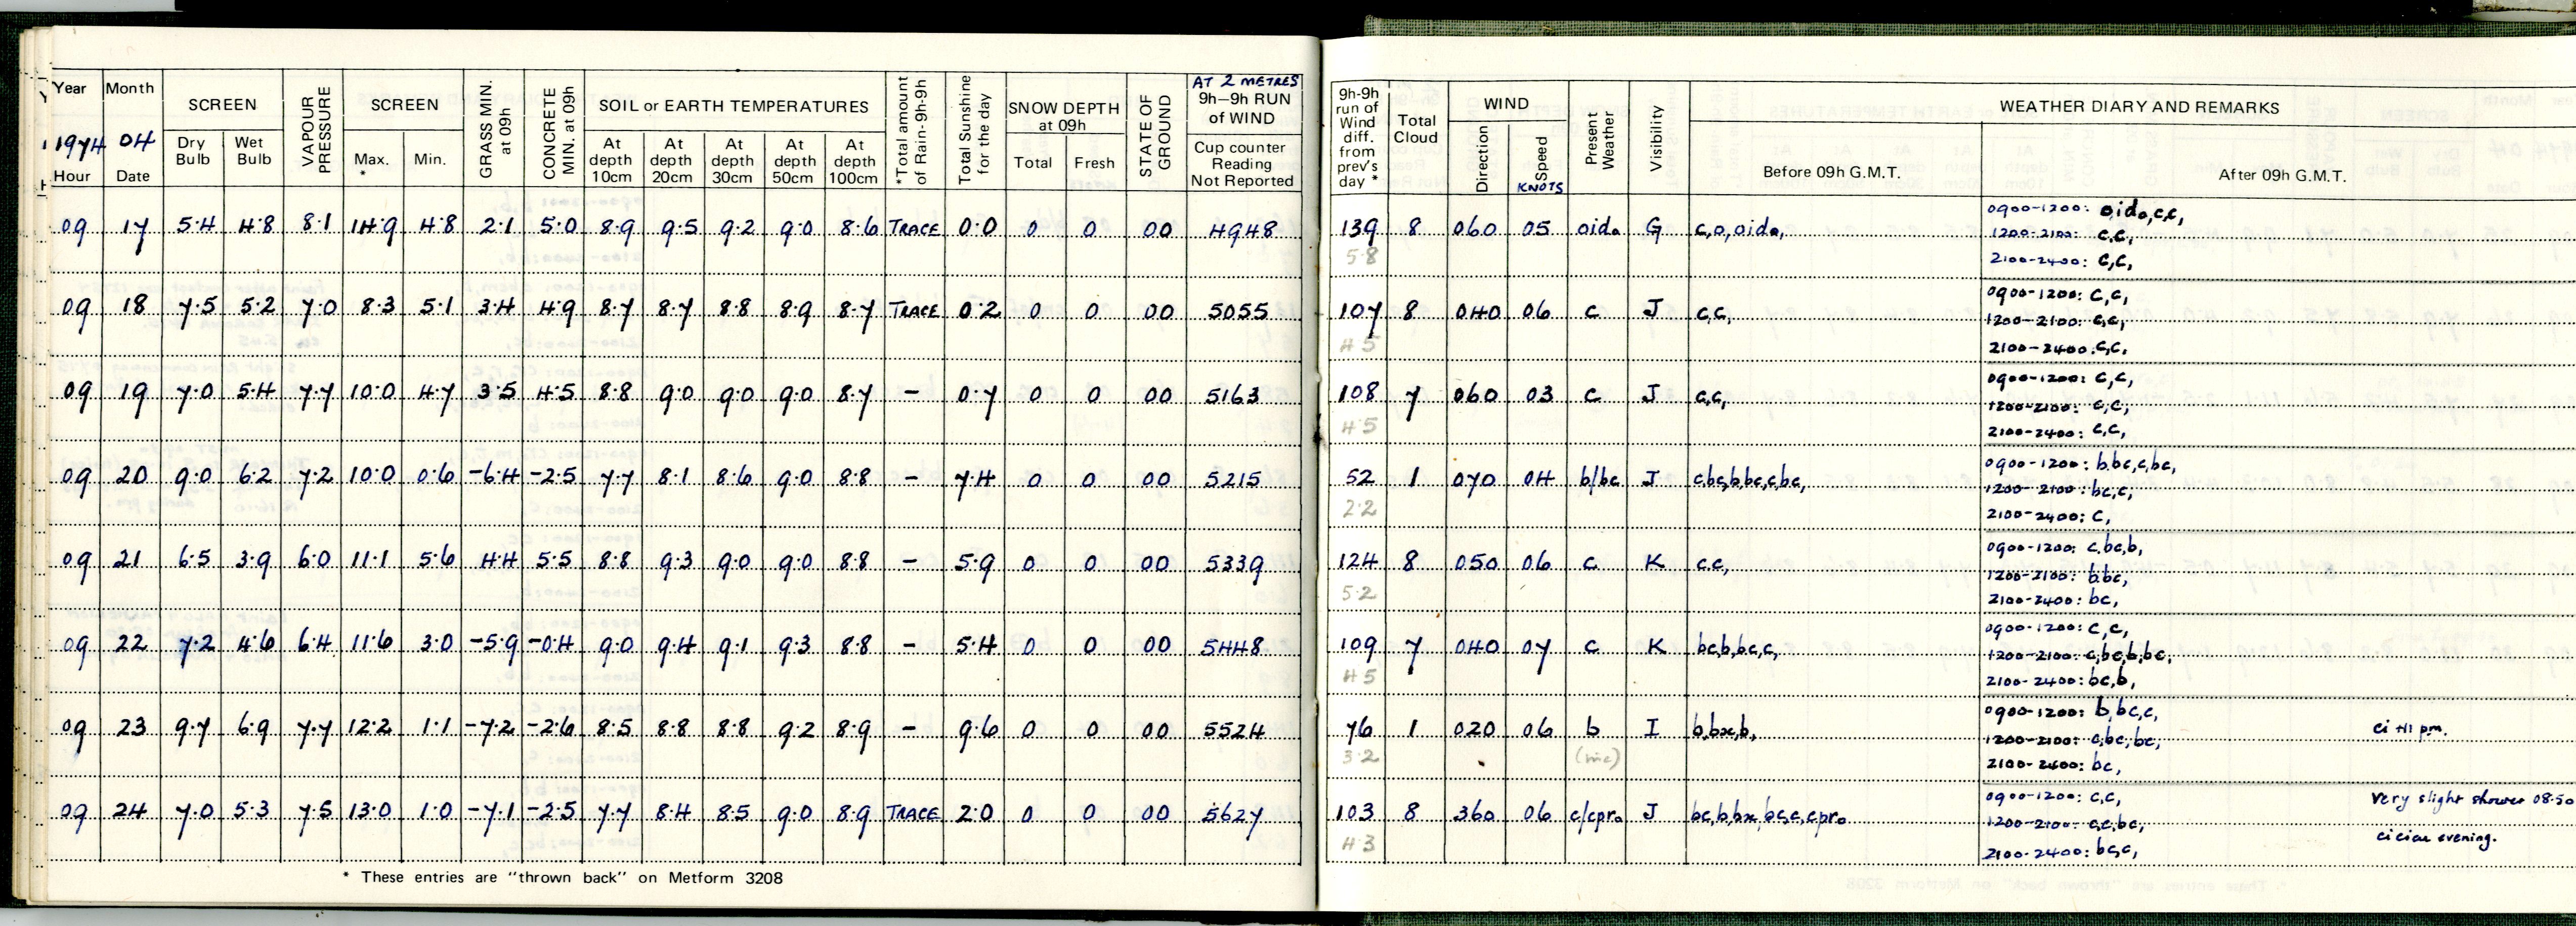 Year Month SCREEN VAPOUR PRESSURE SCREEN GRASS MIN. at 09h CONCRETE MIN. at 09h SOIL or EARTH TEMPERATURES *Total amount of Rain-9h-9h Total Sunshine for the day SNOW DEPTH at 09h STATE OF GROUND AT 2 METRES 9h–9h RUN of WIND
1974 04 Dry Bulb Wet Bulb Max. * Min. At depth 10cm At depth 20cm At depth 30cm At depth 50cm At depth 100cm Total Fresh Cup counter Reading Not Reported
Hour Date
09 17 5.4 4.8 8.1 14.9 4.8 2.1 5.0 8.9 9.5 9.2 9.0 8.6 TRACE 0.0 0 0 00 4948
09 18 7.5 5.2 7.0 8.3 5.1 3.4 4.9 8.7 8.7 8.8 8.9 8.7 TRACE 0.2 0 0 00 5055
09 19 7.0 5.4 7.7 10.0 4.7 3.5 4.5 8.8 9.0 9.0 9.0 8.7 – 0.7 0 0 00 5163
09 20 9.0 6.2 7.2 10.0 0.6 -6.4 -2.5 7.7 8.1 8.6 9.0 8.8 – 7.4 0 0 00 5215
09 21 6.5 3.9 6.0 11.1 5.6 4.4 5.5 8.8 9.3 9.0 9.0 8.8 – 5.9 0 0 00 5339
09 22 7.2 4.6 6.4 11.6 3.0 -5.9 -0.4 9.0 9.4 9.1 9.3 8.8 – 5.4 0 0 00 5448
09 23 9.7 6.9 7.7 12.2 1.1 -7.2 -2.6 8.5 8.8 8.8 9.2 8.9 – 9.6 0 0 00 5524
09 24 7.0 5.3 7.5 13.0 1.0 -7.1 -2.5 7.7 8.4 8.5 9.0 8.9 TRACE 2.0 0 0 00 5627
* These entries are "thrown back" on Metform 3208
9h-9h run of Wind diff. from prev's day * Total Cloud WIND Present Weather Visibility WEATHER DIARY AND REMARKS
Direction Speed KNOTS Before 09h G.M.T. After 09h G.M.T.
139 8 060 05 oido G c,o,oido, 0900-1200: oido,c,c,
1200-2100: c,c,
5.8 2100-2400: c,c,
107 8 040 06 c J c,c, 0900-1200: c,c,
1200-2100: c,c,
4.5 2100-2400: c,c,
108 7 060 03 c J c,c, 0900-1200: c,c,
1200-2100: c,c,
4.5 2100-2400: c,c,
52 1 070 04 b/bc J c,bc,b,bc,c,bc, 0900-1200: b,bc,c,bc,
1200-2100: bc,c,
2.2 2100-2400: c,
124 8 050 06 c K c,c, 0900-1200: c,bc,b,
1200-2100: b,bc,
5.2 2100-2400: bc,
109 7 040 07 c K bc,b,bc,c, 0900-1200: c,c,
1200-2100: c,bc,b,bc,
4.5 2100-2400: bc,b,
76 1 020 06 b I b,bx,b, 0900-1200: b,bc,c,
1200-2100: c,bc,bc, ci pm.
3.2 2100-2400: bc,
103 8 360 06 c/cpro J bc,b,bx,bc,c,cpro 0900-1200: c,c, Very slight shower 08.50
1200-2100: c,c,bc, evening.
4.3 2100-2400: bc,c,